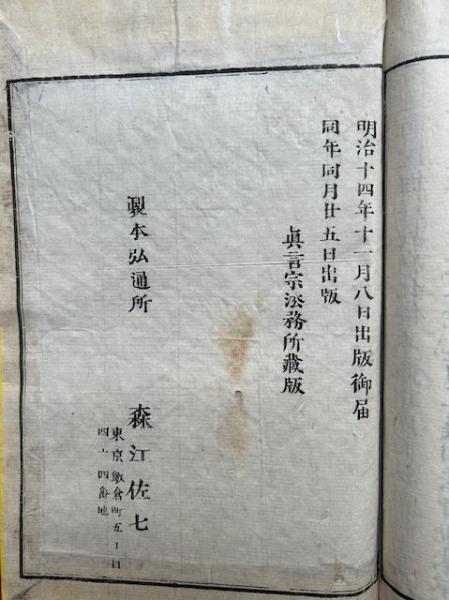 明治十四年十一月八日出版御届
同年同月廿五日出版
眞言宗法務所藏版
製本弘通所
森江佐七
東京飯倉町五丁目
四十四番地